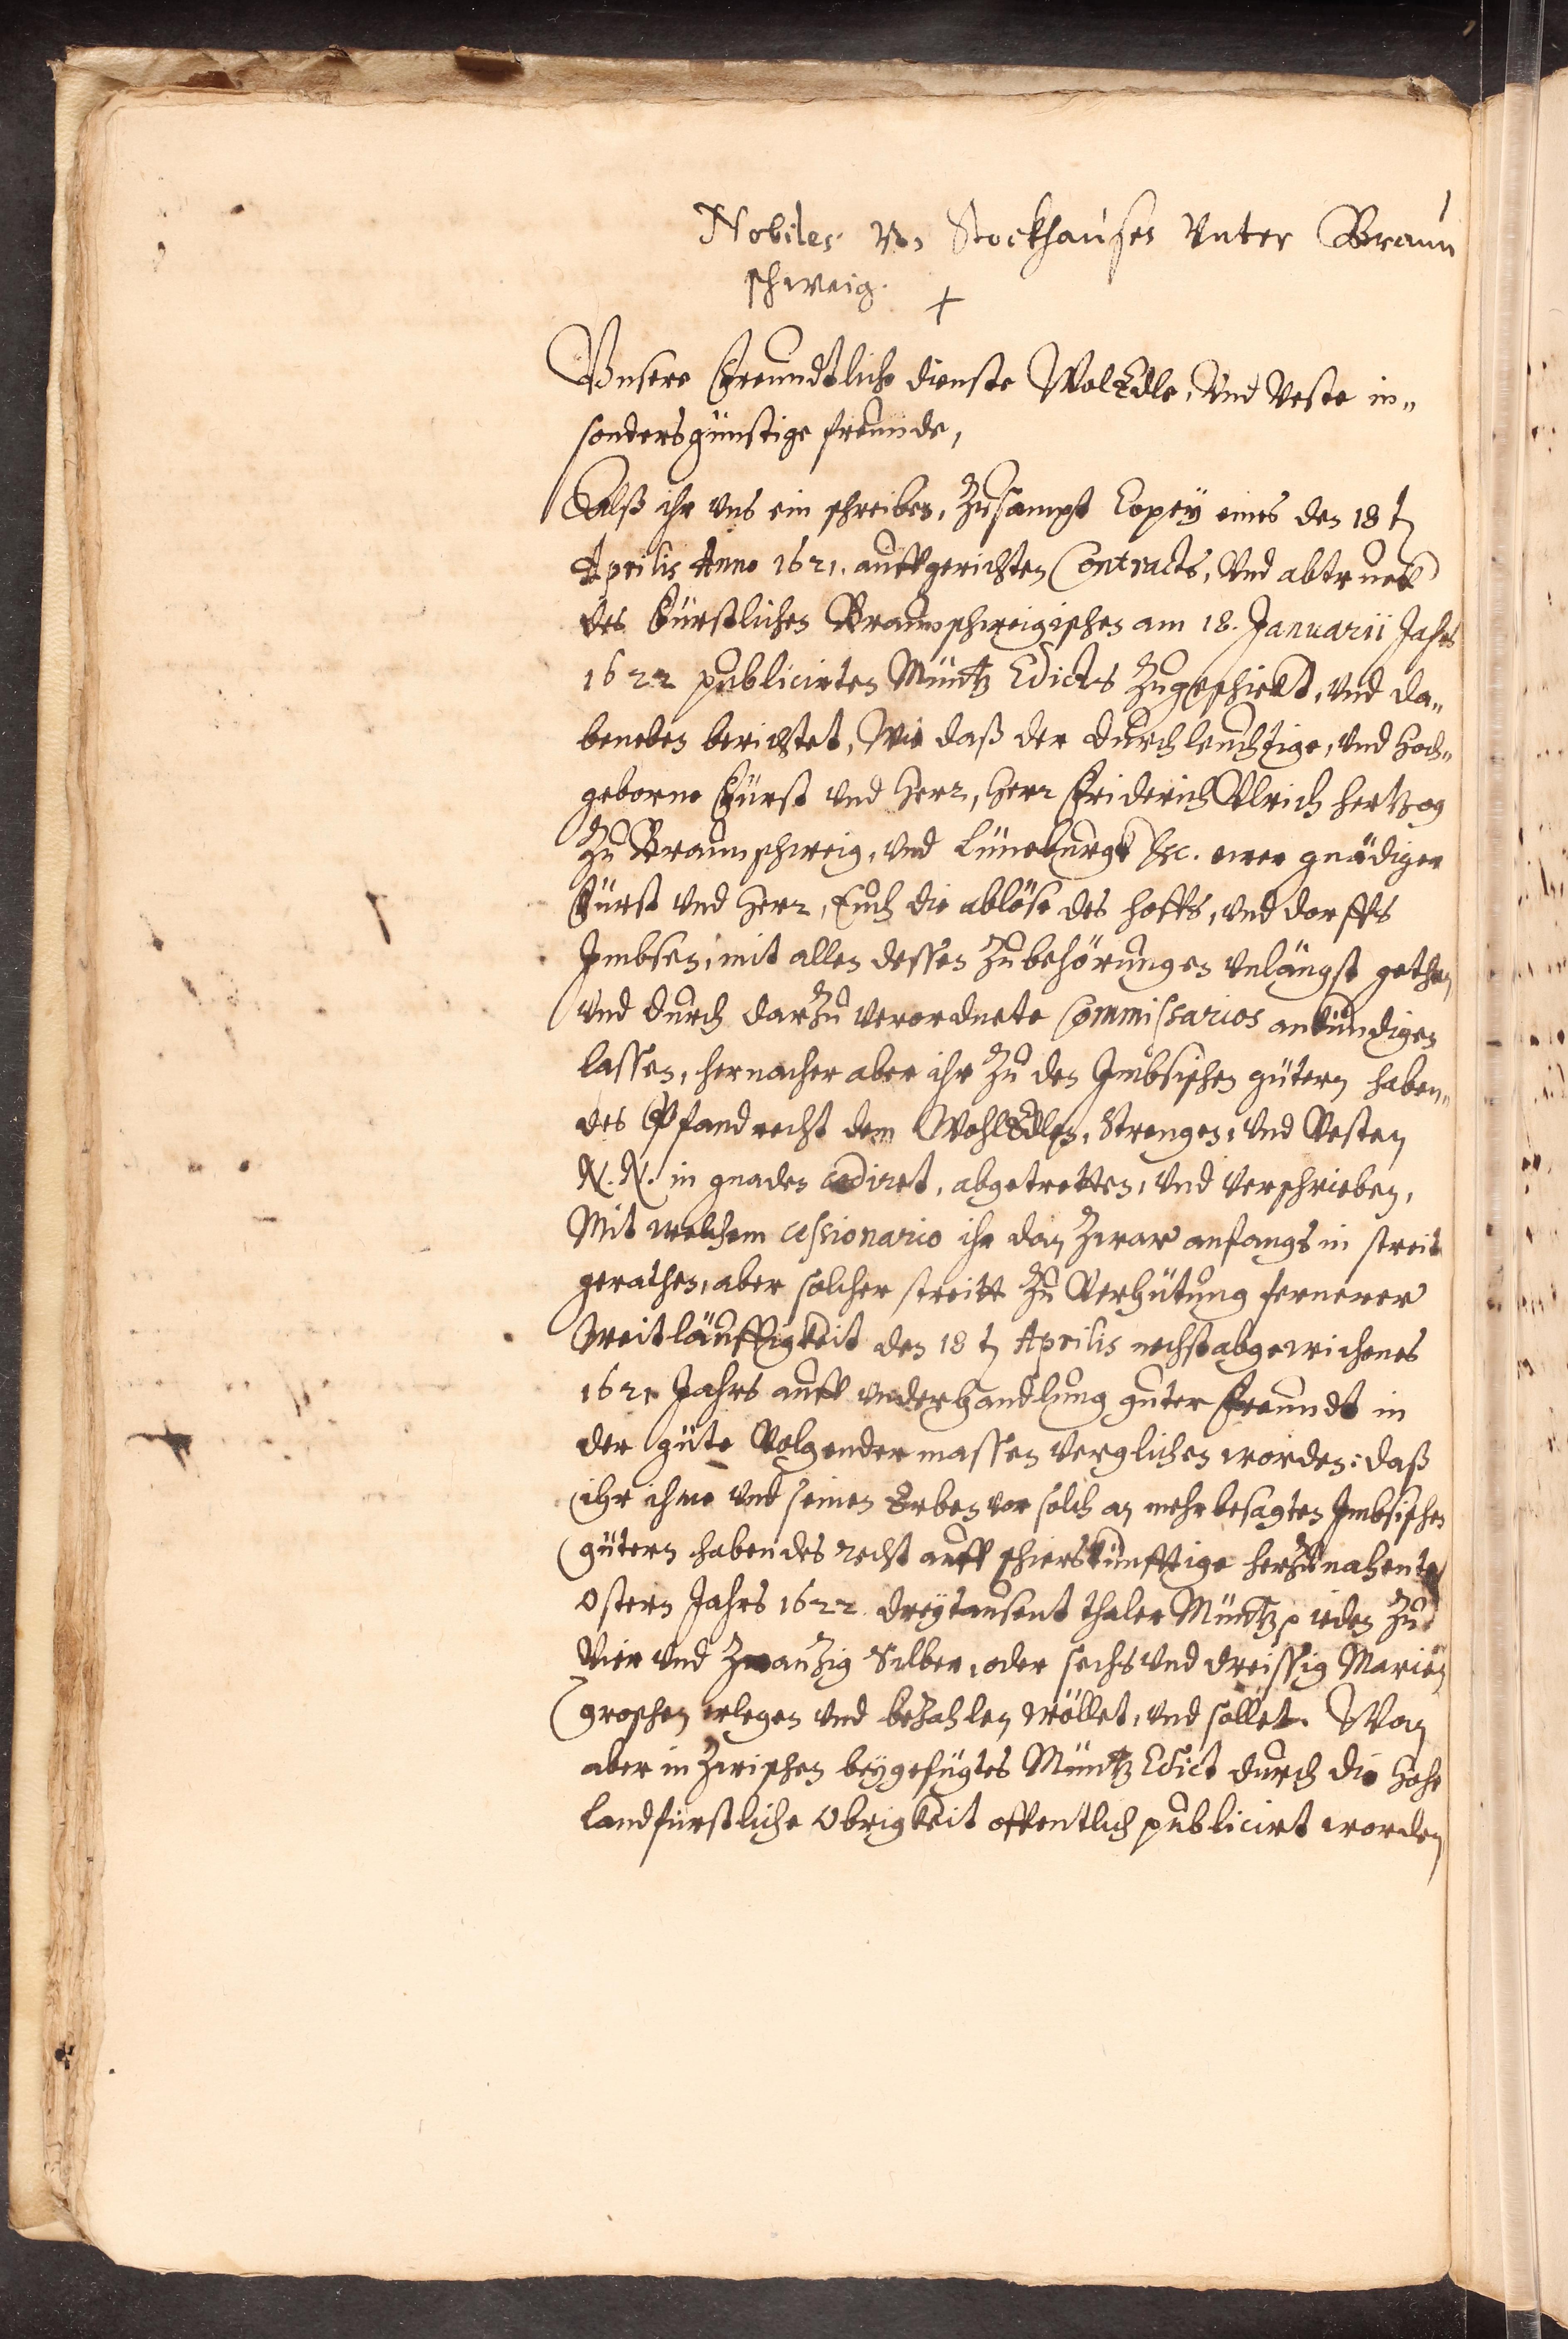 Nobiles v. Stockhausen Unter Braun
schweig.
Unsere Freundtliche dienste WolEdle, Und Veste in„
sondersgünstige freunde,
Alß ihr uns ein schreiben, Zusampt Copey eines den 18 t.
Aprilis Anno 1621. auffgerichten Contracts, Und abtruck
des Fürstlichen Braunschweigischen am 18. Januarii Jahrs
1622 publicirten Müntz Edicts Zugeschickt, und da„
beneben berichtet, Wie daß der durchleuchtige, und hoch„
geborne Fürst und Herr, Herr Friderich Ulrich hertzog
Zu Braunschweig, und Lüneburgk &c. ewer gnädiger
Fürst und Herr, Euch die ablöse des hoffs, und dorffs
Imbsen, mit allen dessen Zubehörungen unlängst gethan
und durch darzu verordnete Commissarios ankündigen
lassen, hernacher aber ihr Zu den Imbsischen gütern haben„
des Pfandrecht dem WohlEdlen, Strengen, und Vesten
N. N. in gnaden cediret, abgetretten, und verschrieben,
Mit welchem cessionario ihr dan Zwar anfangs in streit
gerathen, aber solcher streitt Zu Verhütung fernerer
Weitläuffigkeit den 18 t. Aprilis nechstabgewichenes
1621 Jahrs auff underhandlung guter Freundt in
der güte Volgender massen verglichen worden: daß
ihr ihme und seinen Erben vor solch an mehrbesagten Imbsischen
gütern habendes recht auff schierskünfftige herzunahente
Ostern Jahrs 1622 dreytausent thaler Müntz, ieden Zu
Vier und Zwanzig Silber, oder sechs und dreissig Marien
groschen erlegen und bezahlen wöllet, und sollet. Wan
aber in Zwischen beygefügtes Müntz Edict durch die hohe
landfürstliche Obrigkeit offentlich publicirt worden